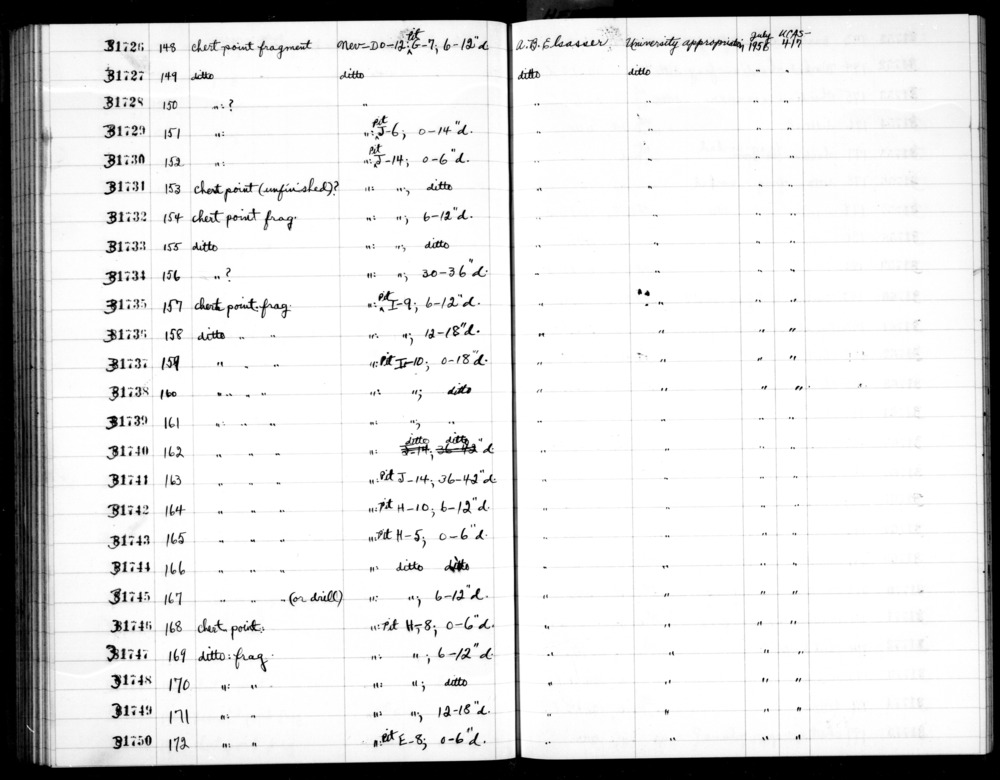 31726 148 chert point fragment Nev-Do-12: Pit G-7; 6-12"d A.B. Elsasser University appropriation July 1956 UCAS-417
31727 149 ditto ditto ditto ditto " "
31728 150 ":? " " " " "
31729 151 ": ": Pit J-6; 0-14"d. " " " "
31730 152 ": ": Pit J-14; 0-6"d. " " " "
31731 153 chert point (unfinished)? ": "; ditto " " " "
31732 154 chert point frag. ": "; 6-12"d. " " " "
31733 155 ditto ": "; ditto " " " "
31734 156 "? ": "; 30-36"d. " " " "
31735 157 chert point frag. ": Pit I-9; 6-12"d. " " " "
31736 158 ditto " " ": "; 12-18"d. " " " "
31737 159 " " " ": Pit I-10; 0-18"d. " " " "
31738 160 " " " " ": "; ditto " " " "
31739 161 ": " " " "; " " " " "
31740 162 " " " ": ditto ditto "d " " " "
31741 163 " " " ": Pit J-14; 36-42"d. " " " "
31742 164 " " " ": Pit H-10; 6-12"d. " " " "
31743 165 " " " ": Pit H-5; 0-6"d. " " " "
31744 166 " " " ": ditto ditto " " " "
31745 167 " " " (or drill) ": "; 6-12"d. " " " "
31746 168 chert point. ": Pit H-8; 0-6"d. " " " "
31747 169 ditto: frag. ": "; 6-12"d. " " " "
31748 170 ": " ": "; ditto " " " "
31749 171 ": " ": "; 12-18"d. " " " "
31750 172 ": " ": Pit E-8; 0-6"d. " " " "